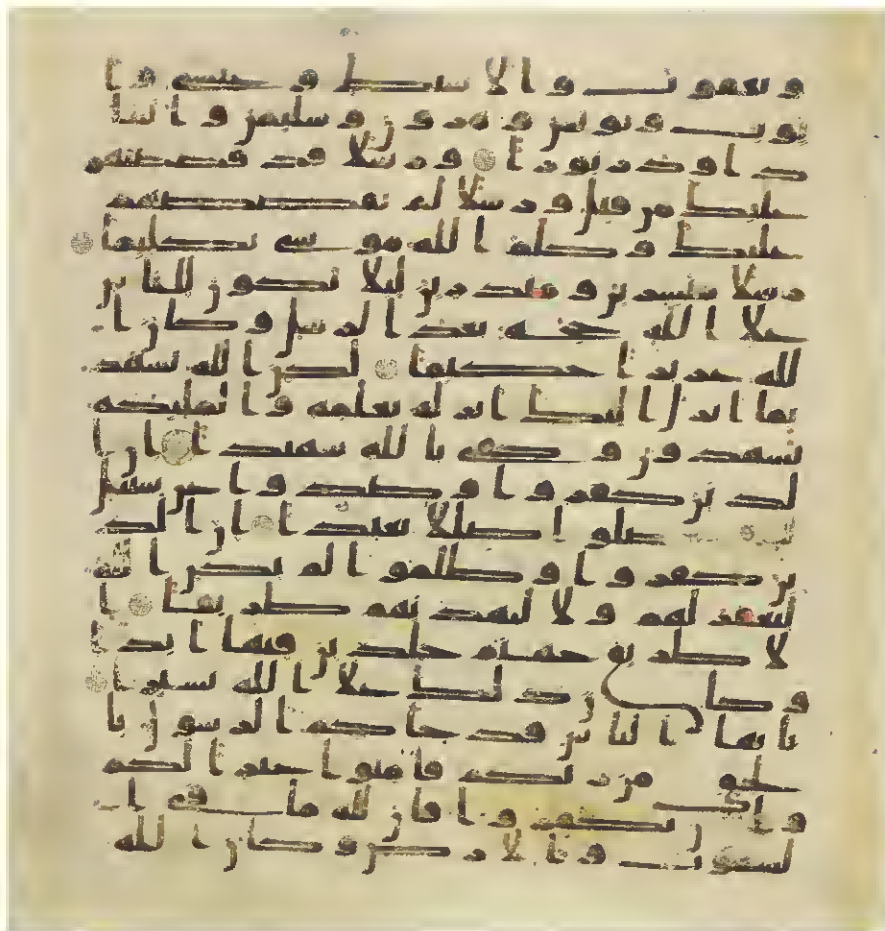 ويعقوب والاسبط وعيسى وا
يوب ويونس وهرون وسليمن واتينا
داود زبورا ورسلا قد قصصنهم
عليك من قبل ورسلا لم نقصصهم
عليك وكلم الله موسى تكليما
رسلا مبشرين ومنذرين ليلا يكون للناس
علا الله حجة بعد الرسل وكان ا
لله عزيزا حكيما لكن الله يشهد
بما انزل اليك انزله بعلمه والمليكة
يشهدون وكفى بالله شهيدا ان ا
لذين كفروا وصدوا عن سبيل
ضلوا ضللا بعيدا ان الذ
ين كفروا وظلموا لم يكن الله
ليغفر لهم ولا ليهديهم طريقا ا
لا طريق جهنم خلدين فيها ابدا
وكان ذلك علا الله يسيرا
يايها الناس قد جاكم الرسول با
لحق من ربكم فامنوا خيرا لكم
وان تكفروا فان لله ما في ا
لسموت والارض وكان الله